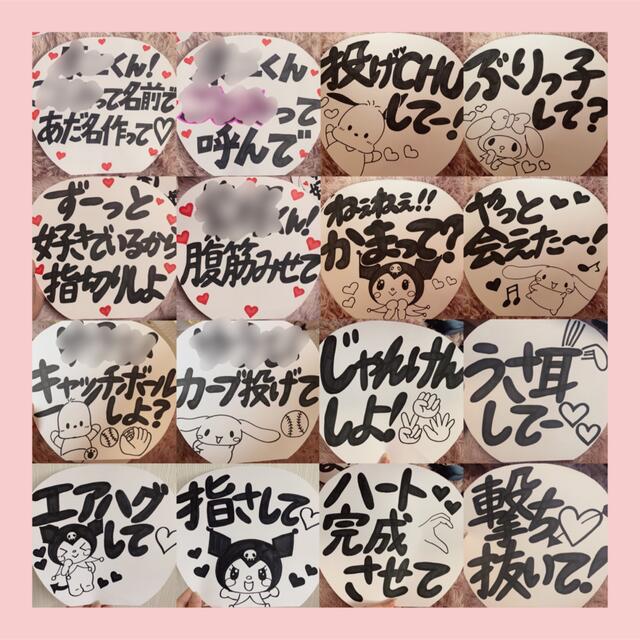 くん!
って名前で
あだ名作って♡
くん
って
呼んで
投げCHU
してー!
ぶりっ子
して?
ずーっと
好きでいるから
指切りしよ
くん!
腹筋みせて
ねぇねぇ!!
かまって?
やっと
会えた〜!
キャッチボール
しよ?
カーブ投げて
じゃんけん
しよ!
うさ耳
してー
エアハグ
して
指さして
ハート
完成
させて
撃ち
抜いて!